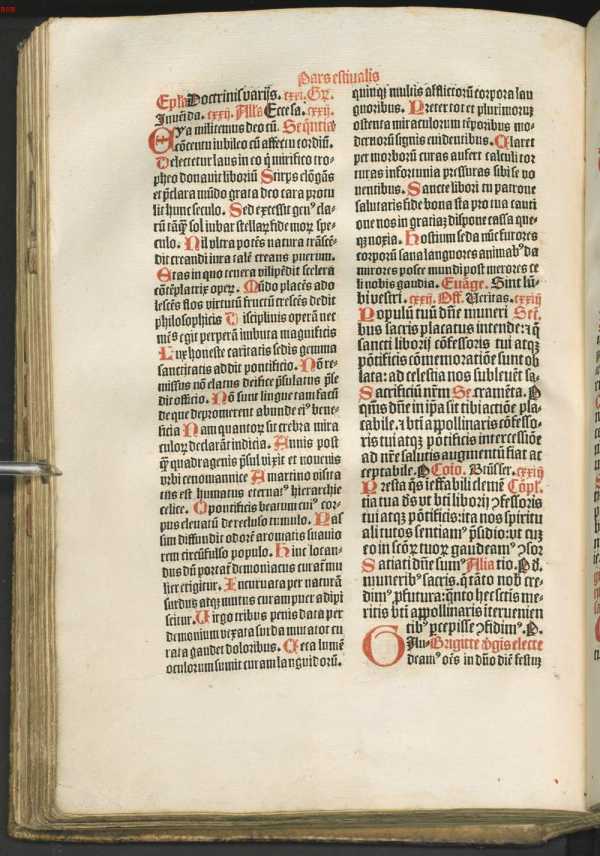 Pars estiualis
Ep̄la Doctrinis varijs. cxxi. Gr̄.
Inuēi da. cxxij. Alla Ecce sa. cxxij.
Oya militemus deo cū. Seq̄ntia
cōcentu iubileo cū affectu cordiū.
Delectetur laus in eo q̄ mirifico tro⸗
pheo donauit liboriū Stirps elōgās
et p̄clara mūdo grata deo cara protu
lit hunc seculo. Sed excessit genꝰ cla⸗
rū tāꝙ̄ sol iubar stellaꝝ fide moꝝ spe⸗
culo. Nil vltra potēs natura trāscē⸗
dit creandi iura talē creans puerum.
Etas in quo tenera vilipēdit scelera
cōtēplatrix opeꝝ. Mūdo placēs ado
lescēs flos virtutū fructū crescēs dedit
philosophicis Disciplinis operā nec
mēs egit perperā imbuta magnificis
Lux honeste caritatis sedis gemma
sanctitatis addit pontificio. Nō re⸗
missus nō elatus deifice p̄sulatus p̄se
dit officio. Nō sunt lingue tam facū
de que depromerent abunde eiꝰ bene⸗
ficia Nam quantoꝝ sit crebra mira
culoꝝ declarāt indicia. Annis post
ꝙ̄ quadragenis p̄sul vixit et nouenis
vrbi cenomannice A martino visita
tus est humatus eternatꝰ hierarchie
celice. Opontificis beatum cuiꝰ cor⸗
pus eleuatū de recluso tumulo. Nas
sim diffundit odorē aromatis suauio
rem circūfulso populo. Hinc locan⸗
dus dū portat̄ demoniacus curat̄ mu
lier erigitur. Incuruata per naturā
surdus atqꝫ mutus curam puer adipi
scitur. Virgo tribus penis data per
demonium vexata surda muta tot cu
rata gaudet doloribus. Ceca lumē
oculorum sumit curam languidorū.
quinqꝫ multis afflictorū corpora lan
guoribus. Preter tot et plurimoꝝ
ostenta miraculorum tēporibus mo⸗
dernorū signis euidentibus. Claret
per morborū curas aufert calculi tor
turas infortunia pressuras sibi se vo
uentibus. Sancte libori tu patrone
salutaris fide bona sta pro tua cauti
one nos in gratiaꝫ dispone cassa que⸗
qꝫ noxia. Hostium seda nūc furores
corporū sana languores animabꝰ da
mirores posce mundi post merores ce
li nobis gaudia. Euāge. Sint lū⸗
bi vestri. cxxij. Off. Ueritas. cxxiij
Populū tuū dn̄e muneri Sec̄.
bus sacris placatus intende: ⁊ q̄
sancti liborij cōfessoris tui atqꝫ
pōtificis cōmemoratiōe sunt ob
lata: ad celestia nos subleuēt sa⸗
Sacrificiū nr̄m Se. cramēta. P
q̄ms dn̄e in ip̄a sit tibi actiōe pla⸗
cabile. ⁊ bt̄i appollinaris cōfesso⸗
ris tui atqꝫ pōtificis intercessiōe
ad nr̄e salutis augmentū fiat ac
ceptabile. P Cōio. Bt̄us ser. cxxiij
Presta q̄s ieffabili clemē Cōpl̄.
tia tua dōs vt bt̄i liborij ꝯfessoris
tui atqꝫ pōtificis: ita nos spiritu
ali tutos sentiamꝰ p̄sidio: vt cuꝫ
eo in scōꝝ tuoꝝ gaudeamꝰ ꝯsor
Satiati dn̄e sumꝰ Alia tio. Pd̄.
muneribꝰ sacris. q̄ tāto nob̄ cre⸗
dimꝰ ꝓfutura: q̄nto hec sctīs me⸗
ritis bt̄i appollinaris iteruenien
tibꝰ ꝑcepisse ꝯfidimꝰ. P.
In Brigitte v̄gis electe
Gaudeamꝰ oēs in dn̄o diē festuꝫ